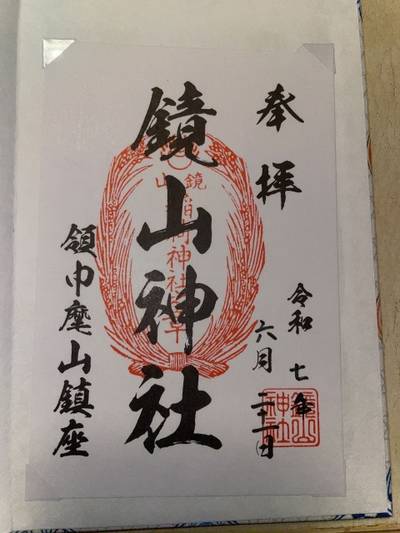 奉拝
鏡山神社
鏡山
稲荷神社
令和七年
六月二十一日
領巾麾山鎮座